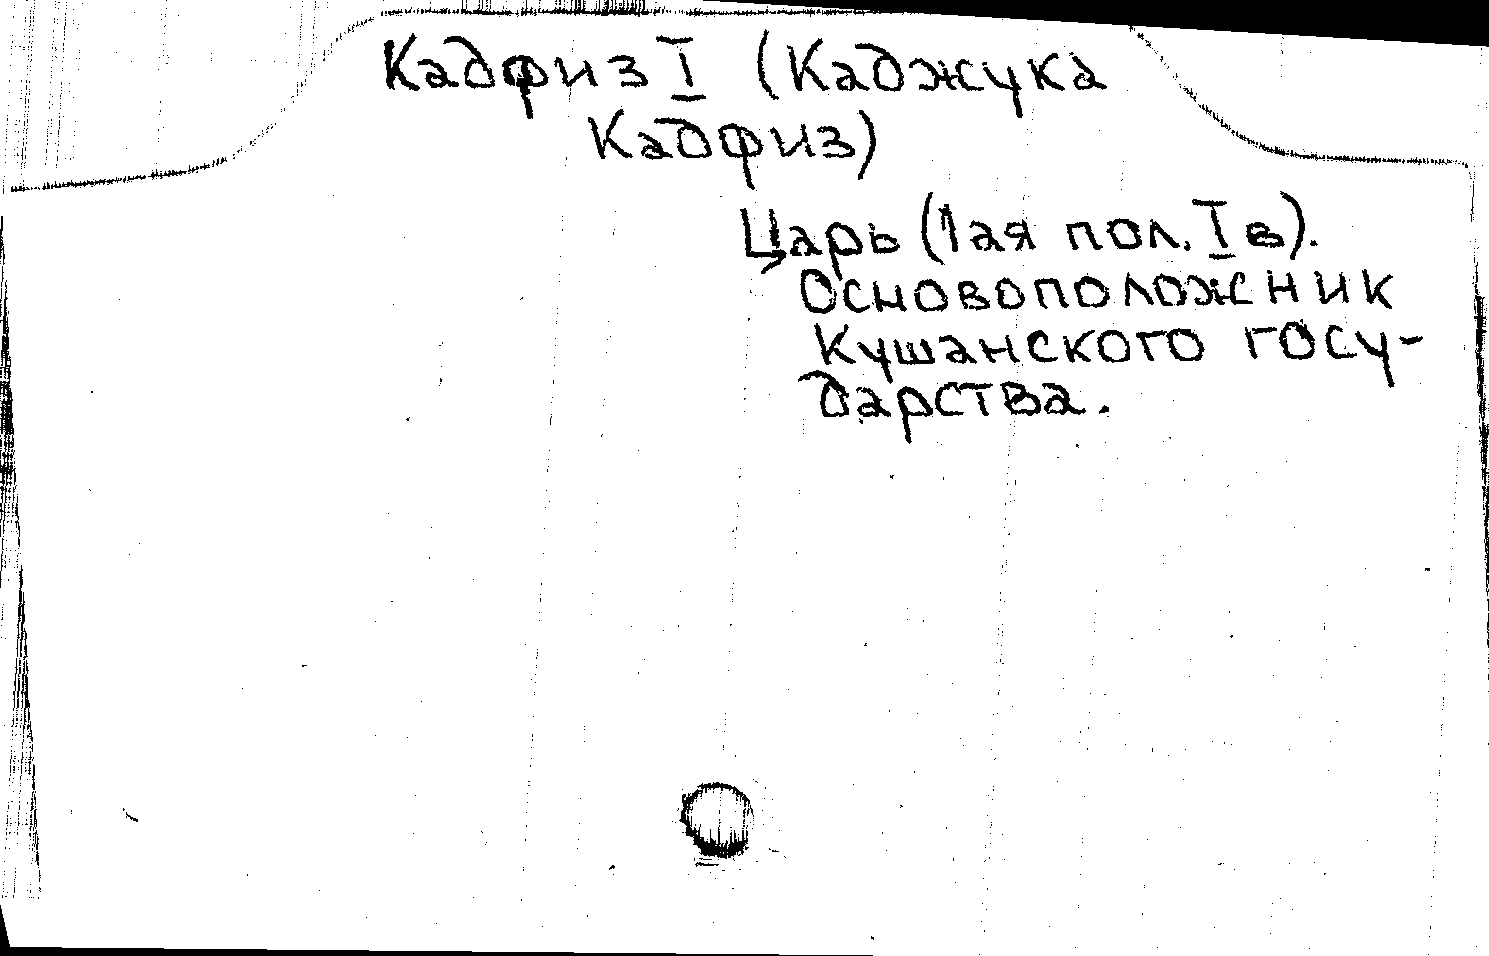 Кадфиз I (Каджука
Кадфиз)
Царь (1ая пол. I в).
Основоположник
Кушанского госу-
дарства.